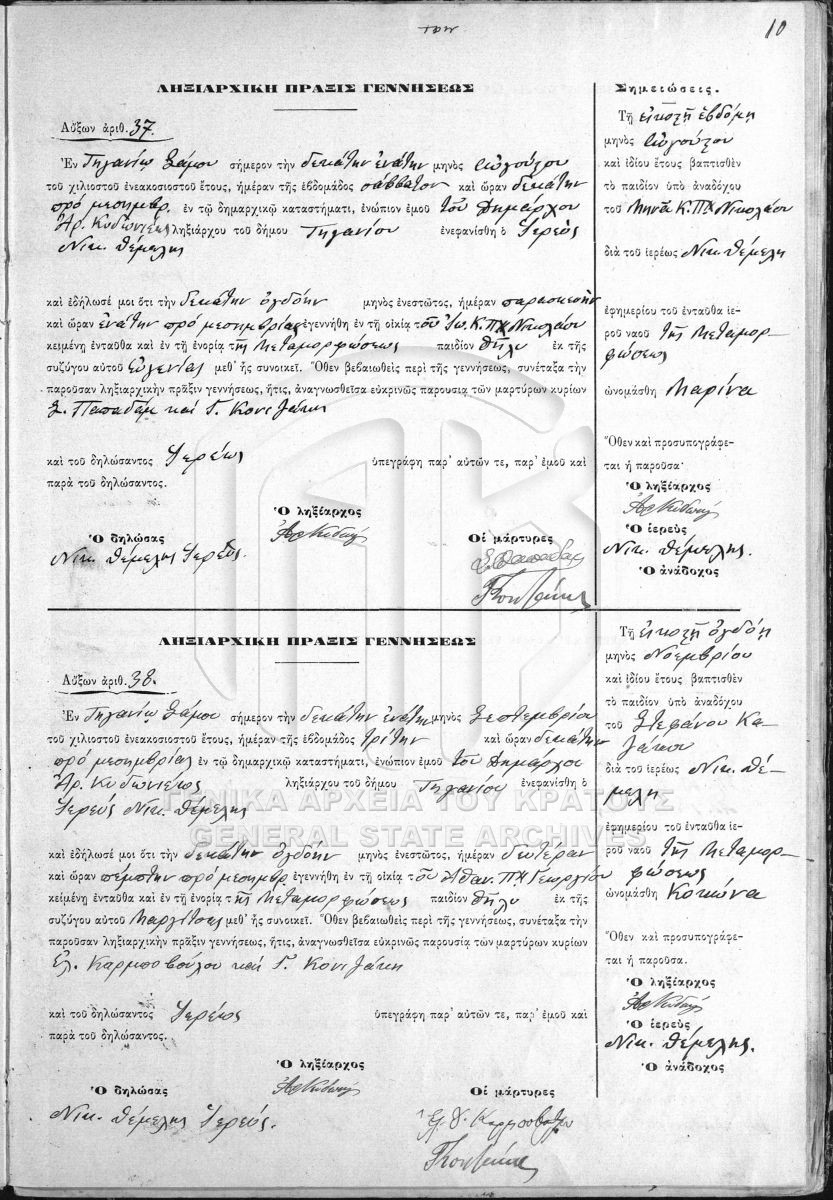 10
ΛΗΞΙΑΡΧΙΚΗ ΠΡΑΞΙΣ ΓΕΝΝΗΣΕΩΣ
Αὔξων ἀριθ. 37.
Ἐν Τηγανίῳ Σάμου σήμερον τὴν δεκάτην ἐνάτην μηνὸς Αὐγούστου
τοῦ χιλιοστοῦ ἐνεακοσιοστοῦ ἔτους, ἡμέραν τῆς ἑβδομάδος σάββατον καὶ ὥραν δεκάτην
πρὸ μεσημβρ. ἐν τῷ δημαρχικῷ καταστήματι, ἐνώπιον ἐμοῦ τοῦ Δημάρχου
Ἀρ. Κυδωνιέως ληξιάρχου τοῦ δήμου Τηγανίου ἐνεφανίσθη ὁ Ἱερεὺς
Νικ. Θέμελης
καὶ ἐδήλωσέ μοι ὅτι τὴν δεκάτην ὀγδόην μηνὸς ἐνεστῶτος, ἡμέραν παρασκευὴν
καὶ ὥραν ἐνάτην πρὸ μεσημβρίας ἐγεννήθη ἐν τῇ οἰκίᾳ τοῦ Ἰω. Κ. ΠΧ Νικολάου
κειμένῃ ἐνταῦθα καὶ ἐν τῇ ἐνορίᾳ τῆς Μεταμορφώσεως παιδίον θῆλυ ἐκ τῆς
συζύγου αὐτοῦ Εὐγενίας μεθ᾽ ἧς συνοικεῖ. Ὅθεν βεβαιωθεὶς περὶ τῆς γεννήσεως, συνέταξα τὴν
παροῦσαν ληξιαρχικὴν πρᾶξιν γεννήσεως, ἥτις, ἀναγνωσθεῖσα εὐκρινῶς παρουσίᾳ τῶν μαρτύρων κυρίων
Σ. Παπαδαμ καὶ Γ. Κονιζάκη
καὶ τοῦ δηλώσαντος Ἱερέως ὑπεγράφη παρ᾽ αὐτῶν τε, παρ᾽ ἐμοῦ καὶ
παρὰ τοῦ δηλώσαντος.
Ὁ ληξίαρχος
Ὁ δηλώσας
Οἱ μάρτυρες
Νικ. Θέμελης Ἱερεὺς
Σημειώσεις.
Τῇ εἰκοστῇ ἑβδόμῃ
μηνὸς Αὐγούστου
καὶ ἰδίου ἔτους βαπτισθὲν
τὸ παιδίον ὑπὸ ἀναδόχου
τοῦ Μηνᾶ Κ. ΠΧ Νικολάου
διὰ τοῦ ἱερέως Νικ. Θέμελη
ἐφημερίου τοῦ ἐνταῦθα ἱε-
ροῦ ναοῦ τῆς Μεταμορ-
φώσεως
ὠνομάσθη Μαρίνα
Ὅθεν καὶ προσυπογράφε-
ται ἡ παροῦσα·
Ὁ ληξίαρχος
Ὁ ἱερεὺς
Νικ. Θέμελης.
Ὁ ἀνάδοχος
ΛΗΞΙΑΡΧΙΚΗ ΠΡΑΞΙΣ ΓΕΝΝΗΣΕΩΣ
Αὔξων ἀριθ. 38.
Ἐν Τηγανίῳ Σάμου σήμερον τὴν δεκάτην ἐνάτην μηνὸς Σεπτεμβρίου
τοῦ χιλιοστοῦ ἐνεακοσιοστοῦ ἔτους, ἡμέραν τῆς ἑβδομάδος τρίτην καὶ ὥραν δεκάτην
πρὸ μεσημβρίας ἐν τῷ δημαρχικῷ καταστήματι, ἐνώπιον ἐμοῦ τοῦ Δημάρχου
Ἀρ. Κυδωνιέως ληξιάρχου τοῦ δήμου Τηγανίου ἐνεφανίσθη ὁ
Ἱερεὺς Νικ. Θέμελης
καὶ ἐδήλωσέ μοι ὅτι τὴν δεκάτην ὀγδόην μηνὸς ἐνεστῶτος, ἡμέραν δευτέραν
καὶ ὥραν πέμπτην πρὸ μεσημβρ ἐγεννήθη ἐν τῇ οἰκίᾳ τοῦ Ἀθαν. ΠΧ Γεωργίου
κειμένῃ ἐνταῦθα καὶ ἐν τῇ ἐνορίᾳ τῆς Μεταμορφώσεως παιδίον θῆλυ ἐκ τῆς
συζύγου αὐτοῦ Μαργίτσας μεθ᾽ ἧς συνοικεῖ. Ὅθεν βεβαιωθεὶς περὶ τῆς γεννήσεως, συνέταξα τὴν
παροῦσαν ληξιαρχικὴν πρᾶξιν γεννήσεως, ἥτις, ἀναγνωσθεῖσα εὐκρινῶς παρουσίᾳ τῶν μαρτύρων κυρίων
Ἐλ. Καρμποβούλου καὶ Γ. Κονιζάκη
καὶ τοῦ δηλώσαντος Ἱερέως ὑπεγράφη παρ᾽ αὐτῶν τε, παρ᾽ ἐμοῦ καὶ
παρὰ τοῦ δηλώσαντος.
Ὁ ληξίαρχος
Ὁ δηλώσας
Οἱ μάρτυρες
Νικ. Θέμελης Ἱερεύς.
Τῇ εἰκοστῇ ὀγδόῃ
μηνὸς Νοεμβρίου
καὶ ἰδίου ἔτους βαπτισθὲν
τὸ παιδίον ὑπὸ ἀναδόχου
τοῦ Στεφάνου Κα-
ζάκου
διὰ τοῦ ἱερέως Νικ. Θέ-
μελη
ἐφημερίου τοῦ ἐνταῦθα ἱε-
ροῦ ναοῦ τῆς Μεταμορ-
φώσεως
ὠνομάσθη Κοκώνα
Ὅθεν καὶ προσυπογράφε-
ται ἡ παροῦσα.
Ὁ ληξίαρχος
Ὁ ἱερεὺς
Νικ. Θέμελης.
Ὁ ἀνάδοχος
ΓΕΝΙΚΑ ΑΡΧΕΙΑ ΤΟΥ ΚΡΑΤΟΥΣ
GENERAL STATE ARCHIVES